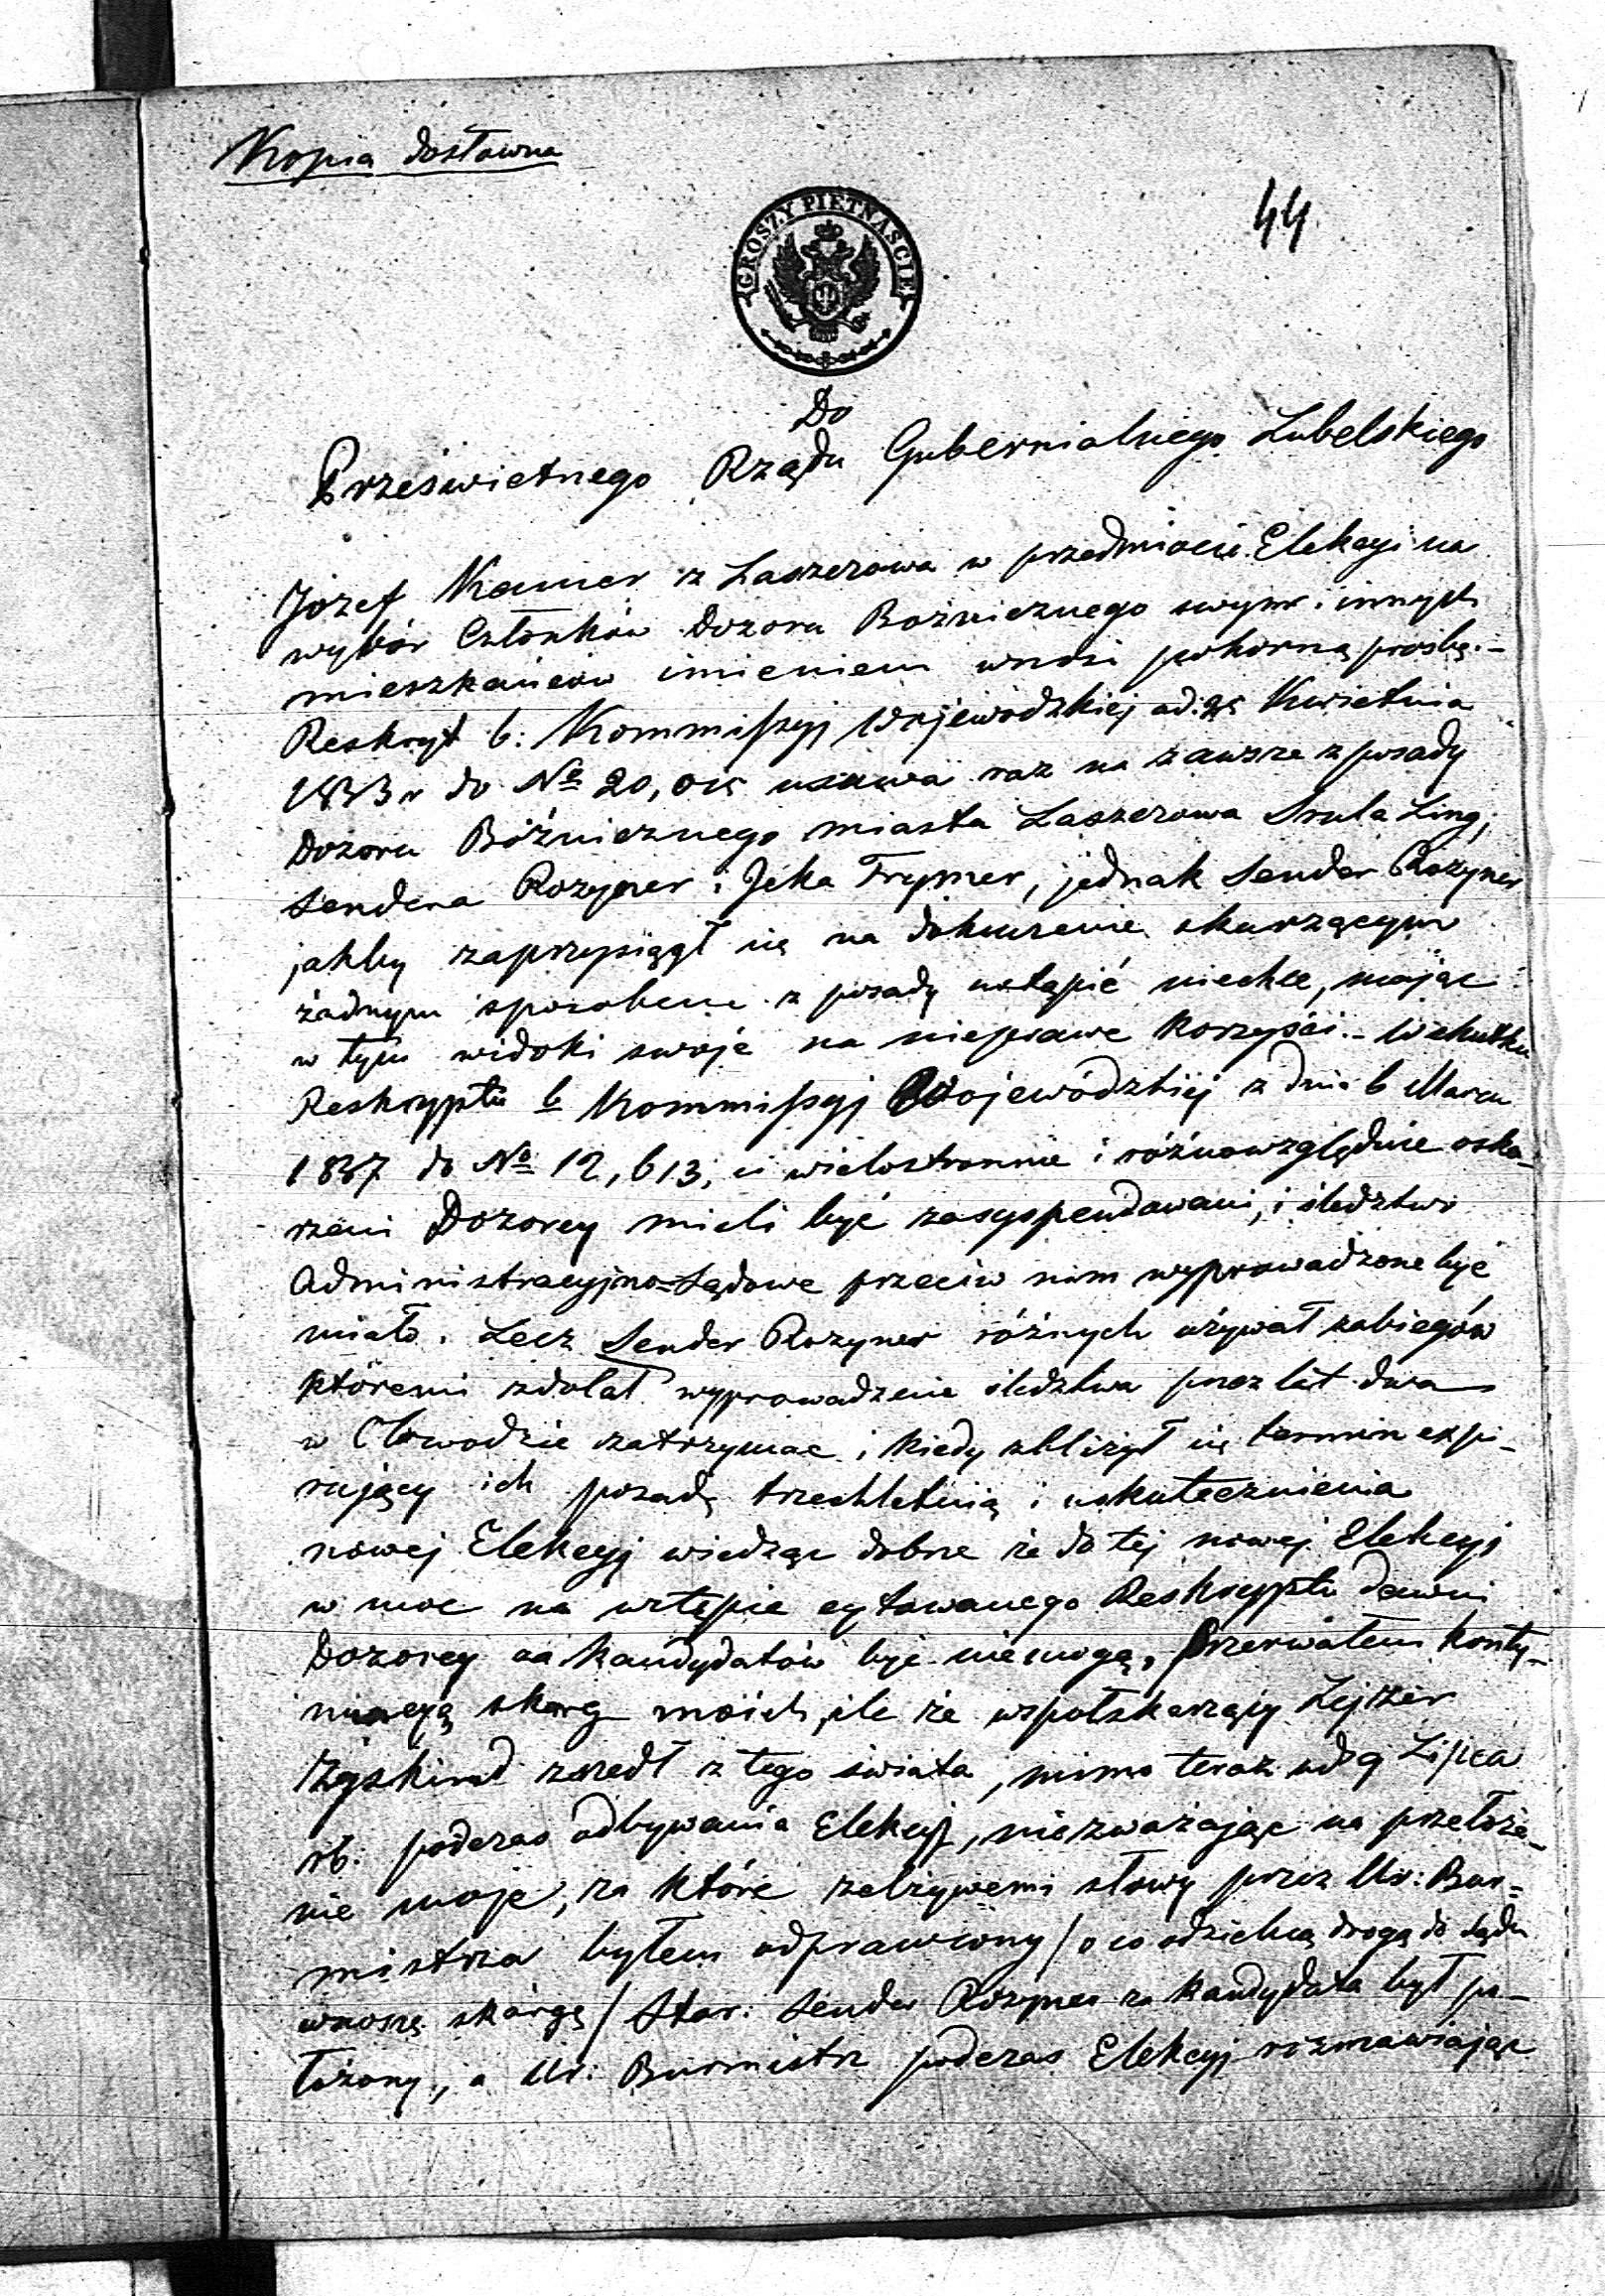 Kopia dosłowna
44
GROSZY PIETNASCIE
Do
Prześwietnego Rządu Gubernialnego Lubelskiego
Józef Kamer z Łaszczowa w przedmiocie Elekcyi na
wybór Członków Dozoru Bożnicznego swym i innych
mieszkańców imieniem wnosi pokorną prośbę.–
Reskrypt b: Kommissyj Wojewódzkiej od Kwietnia
do No usuwa raz na zawsze z posady
Dozoru Bóżnicznego miasta Łaszczowa Srula Ling,
Sendera Rozyner i Jcka Frymer, jednak Sender Rozyner
jakby zaprzysiągł się na dokuczenie skarzącym
żadnym sposobem z posady ustąpić niechce, mając
w tym widoki swoje na nieprawe korzyści.– Wskutku
Reskryptu b Kommissyj Wojewódzkiej z dnia 6 Marca
1837 do No 12,613, ci wielostronnie i różnowzględnie oska-
rzeni Dozorcy mieli być zasyspendowani, i śledztwo
Administracyjno=Sądowe przeciw nim wyprowadzone być
miało. Lecz Sender Rozyner różnych używał zabiegów
któremi zdołał wyprowadzenie śledztwa przez lat dwa
w Obwodzie zatrzymac i kiedy zbliżył się termin expi-
rujący ich posadę trzechletnią i uskutecznienia
nowej Elekcyj wiedząc dobrze że do tej nowej Elekcyj
w moc na wstępie cytowanego Reskryptu dawni
Dozorcy na kandydatów być niemogą, przerwałem konty-
nuacyą skarg moich, ile że współskarzący Lejzer
Zyskind zszedł z tego świata, mimo teraz od 9 Lipca
rb. podczas odbywania Elekcyj, niezważając na przełoże-
nie moje, za które zelżywemi słowy przez Ur: Bur=
mistrza byłem odprawiony / o co odzielną drogą do Sądu
wnoszę skargę / Star: Sender Rozyner za kandydata był po-
łożony, a Ur: Burmistrz podczas Elekcyj rozmawiając